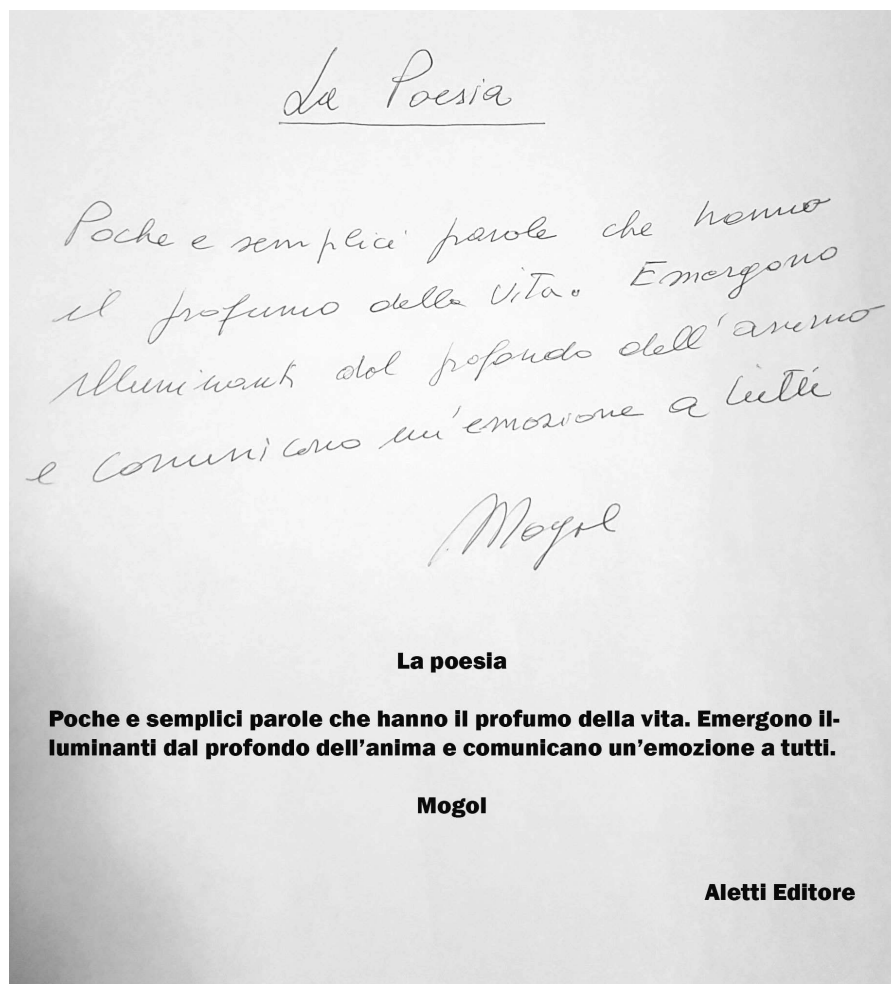 La Poesia
Poche e semplici parole che hanno
il profumo della vita. Emergono
illuminanti dal profondo dell'animo
e comunicano un'emozione a tutti
Mogol
La poesia
Poche e semplici parole che hanno il profumo della vita. Emergono il-
luminanti dal profondo dell'anima e comunicano un'emozione a tutti.
Mogol
Aletti Editore